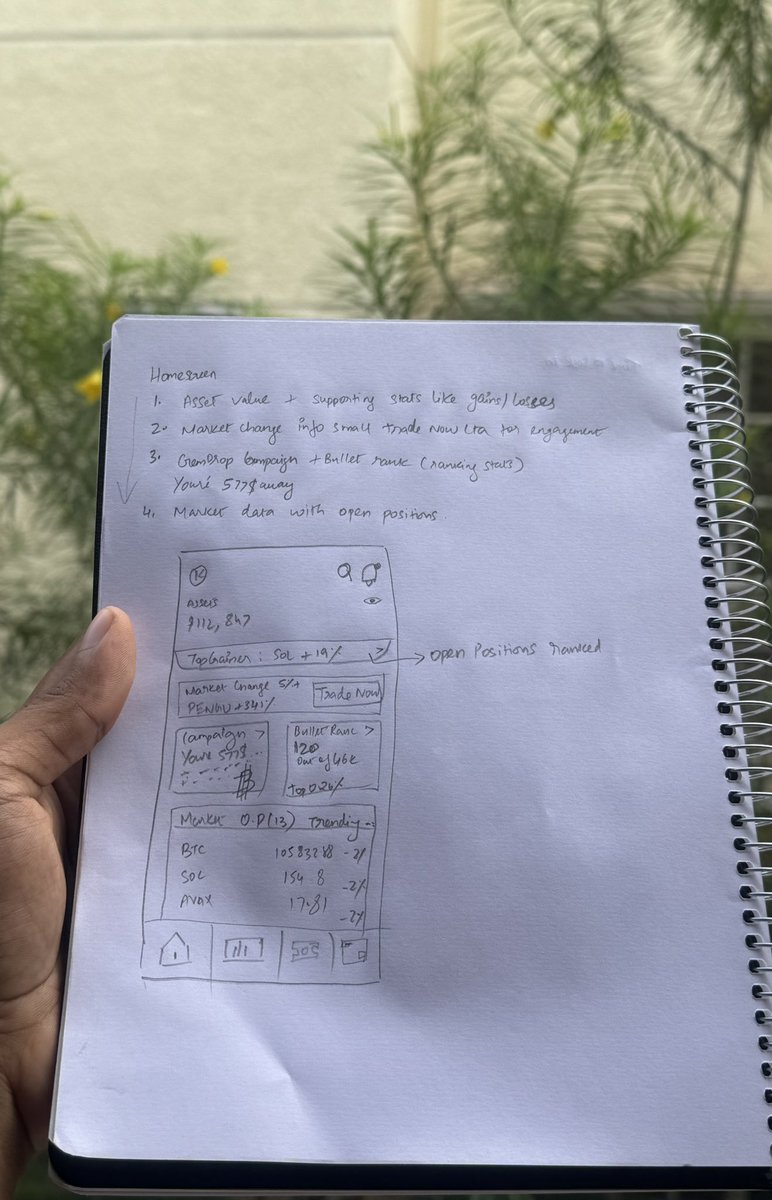 Homescreen
1. Asset value + supporting stats like gains/losses
2. Market change info small Trade Now CTA for engagement
3. Campaign + Bullet rank (ranking stats)
You're 577$ away
4. Market data with open positions.
K
Assets
$112,847
Top Gainer: SOL +19%
> Open Positions ranked
Market Change 5%+
PENGU +341%
Trade Now
Campaign >
You're 577$...
Bullet Rank >
120
Out of 46k
Market O.P(13) Trending
BTC -2%
SOL 154 8 -2%
AVAX 17.81 -2%